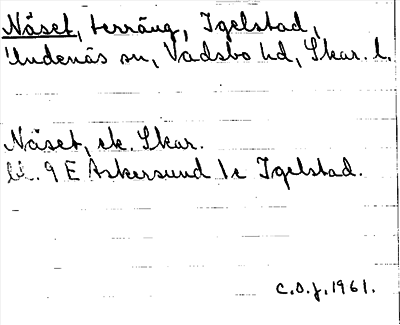 Näset, terräng, Igelstad,
Undenäs sn, Vadsbo hd, Skar. l.
Näset, ek. Skar.
bl. 9 E Askersund 1c Igelstad.
C.O.J. 1961.